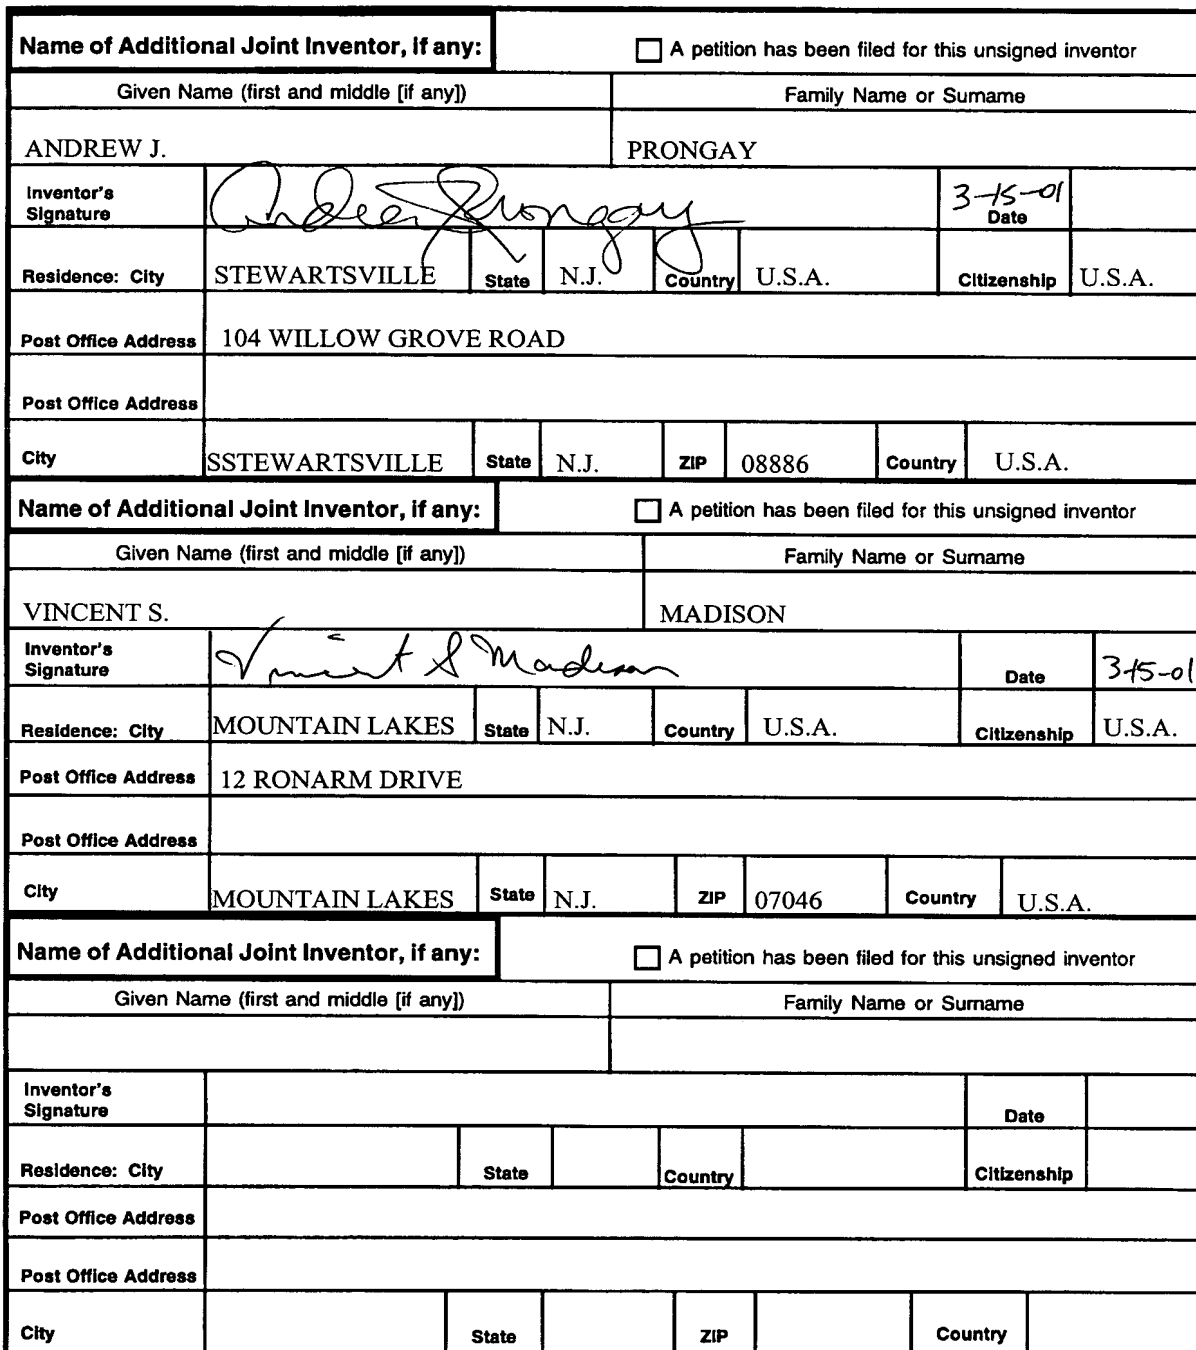 Name of Additional Joint Inventor, if any: A petition has been filed for this unsigned inventor
Given Name (first and middle [if any]) Family Name or Surname
ANDREW J. PRONGAY
Inventor's Signature Andrew J Prongay 3-15-01 Date
Residence: City STEWARTSVILLE State N.J. Country U.S.A. Citizenship U.S.A.
Post Office Address 104 WILLOW GROVE ROAD
Post Office Address
City SSTEWARTSVILLE State N.J. ZIP 08886 Country U.S.A.
Name of Additional Joint Inventor, if any: A petition has been filed for this unsigned inventor
Given Name (first and middle [if any]) Family Name or Surname
VINCENT S. MADISON
Inventor's Signature Vincent S Madison Date 3-15-01
Residence: City MOUNTAIN LAKES State N.J. Country U.S.A. Citizenship U.S.A.
Post Office Address 12 RONARM DRIVE
Post Office Address
City MOUNTAIN LAKES State N.J. ZIP 07046 Country U.S.A.
Name of Additional Joint Inventor, if any: A petition has been filed for this unsigned inventor
Given Name (first and middle [if any]) Family Name or Surname
Inventor's Signature Date
Residence: City State Country Citizenship
Post Office Address
Post Office Address
City State ZIP Country